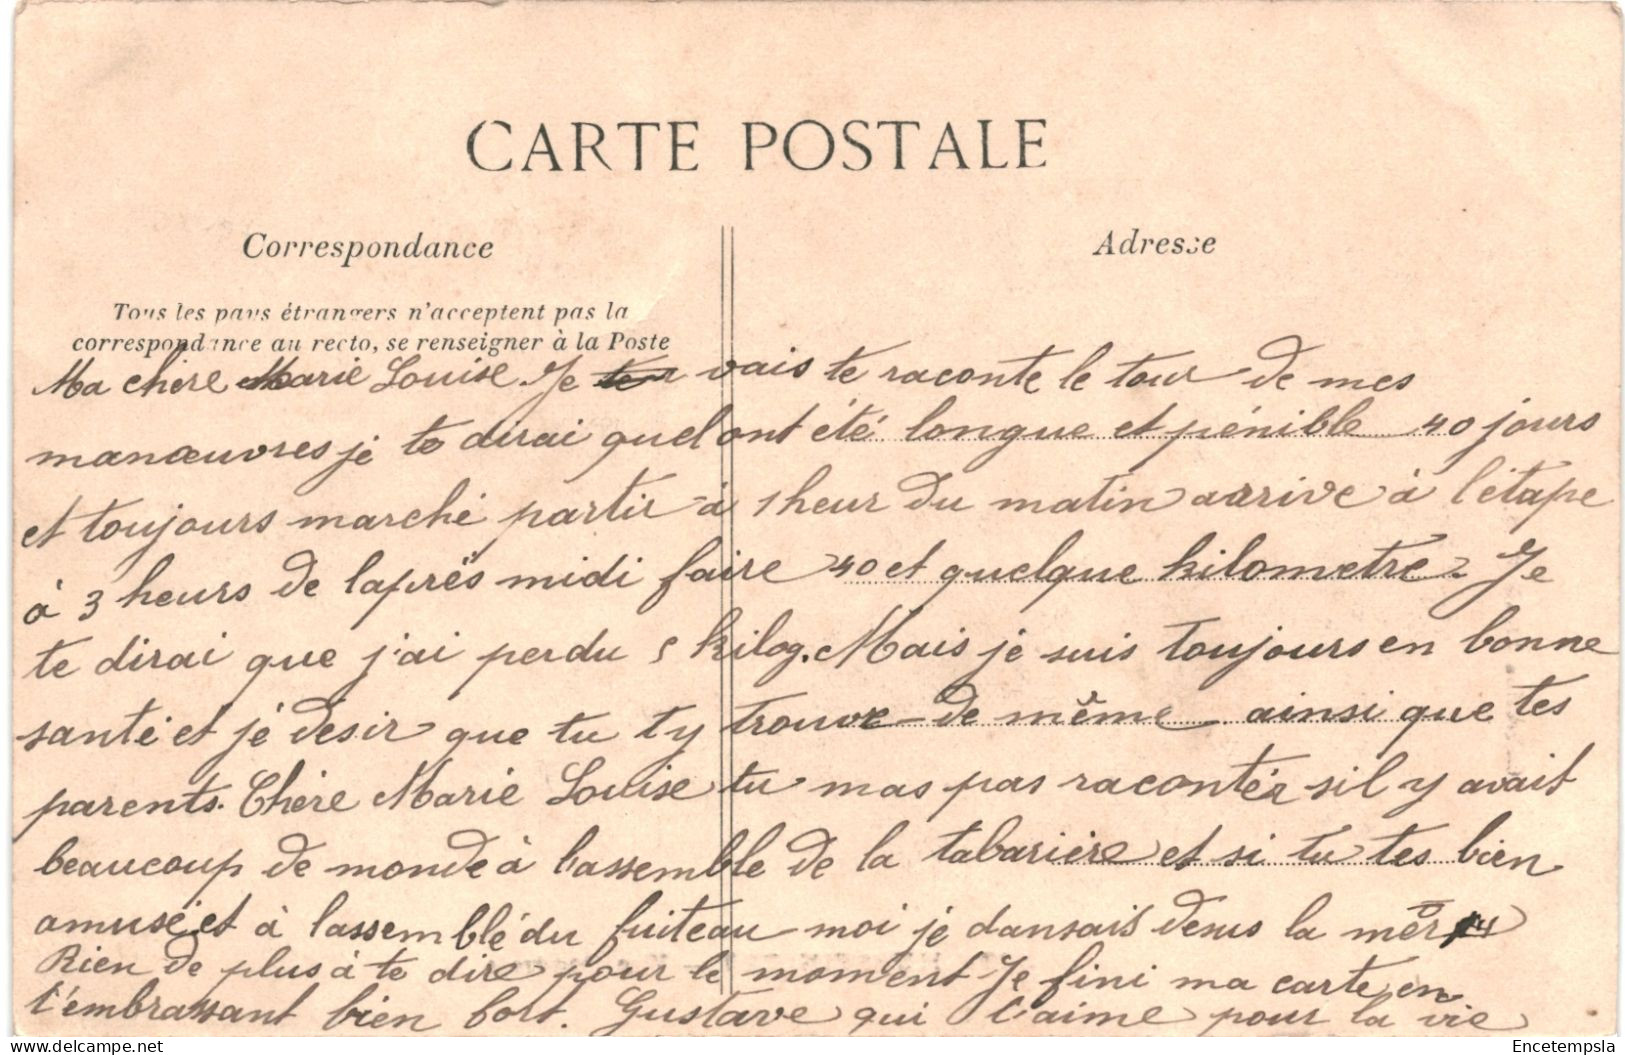 CARTE POSTALE
Correspondance
Adresse
Tous les pays étrangers n'acceptent pas la
correspondance au recto, se renseigner à la Poste
Ma chère Marie Louise Je vais te raconte le tour de mes
manœuvres je te dirai quel ont été longue et pénible 40 jours
et toujours marché partir à 1 heur du matin arrive à l'étape
à 3 heurs de laprès midi faire 40 et quelque kilometre. Je
te dirai que j'ai perdu 5 kilog. Mais je suis toujours en bonne
santé et je desir que tu ty trouve de même ainsi que tes
parents. Chère Marie Louise tu mas pas raconter sil y avait
beaucoup de monde à lassemble de la tabarière et si tu tes bien
amusé et à lassemblé du fuiteau moi je dansais desus la mer
Rien de plus à te dire pour le moment Je fini ma carte en
t'embrassant bien fort. Gustave qui t'aime pour la vie
Encetempsla